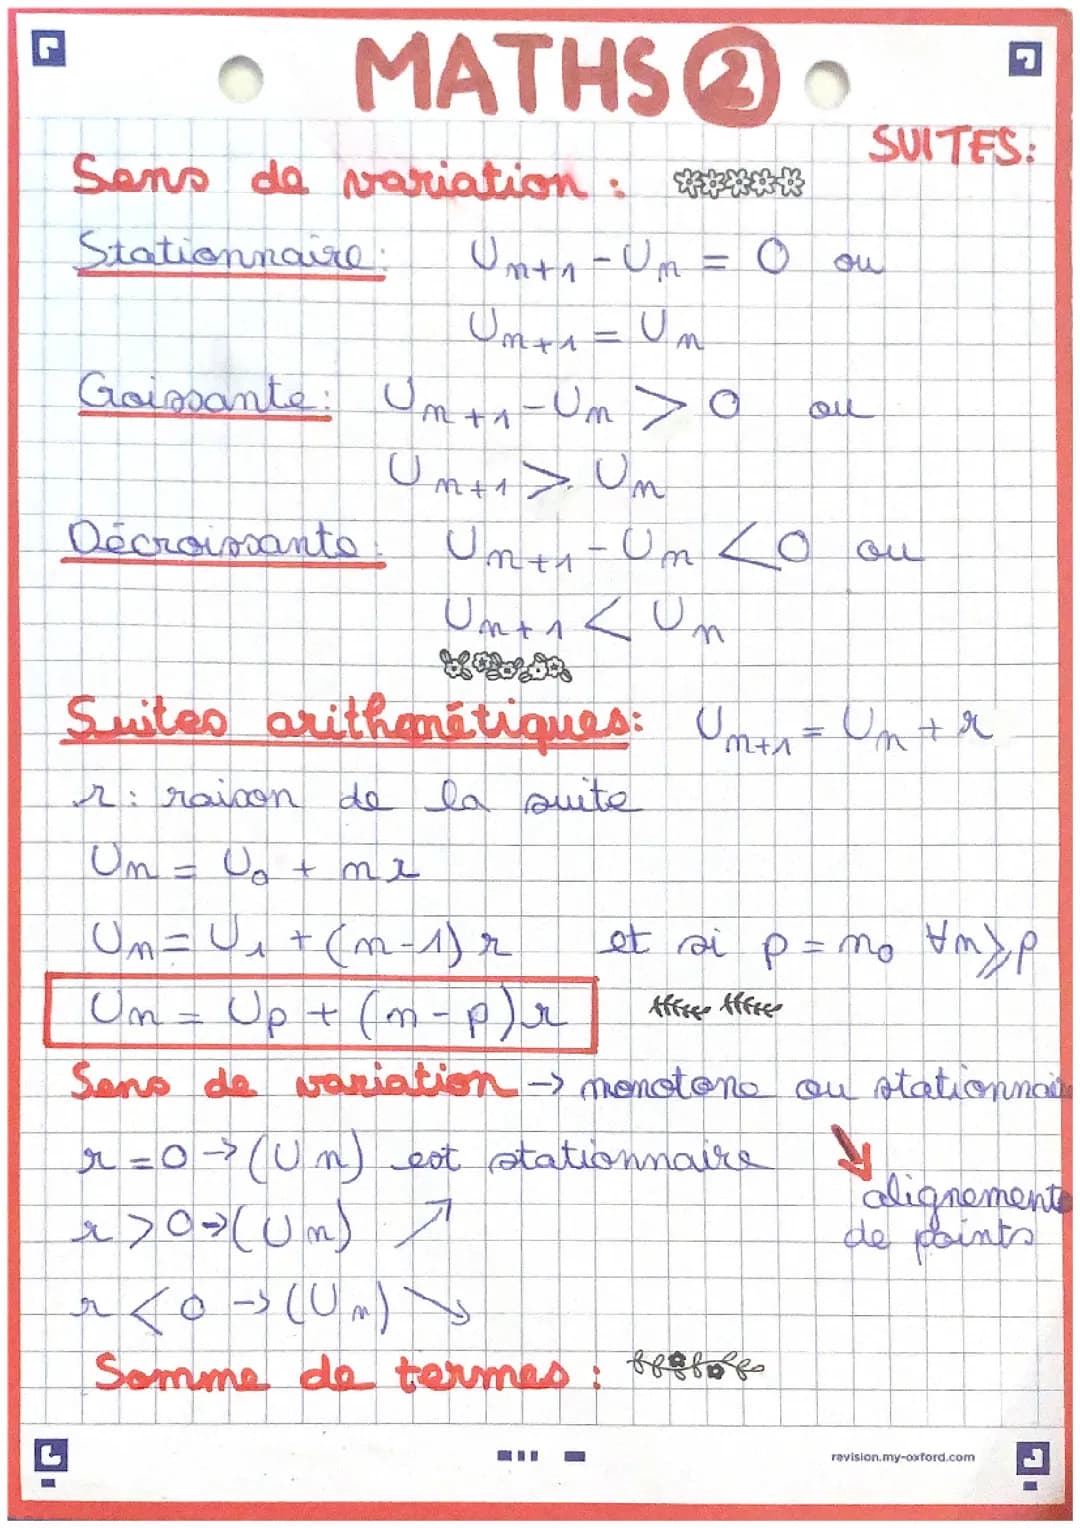 MATHS ②
SUITES:
Sens de variation :
Stationnaire: Un+1 - Un = 0 ou
Un+1 = Un
Croissante: Un+1 - Un > 0 ou
Un+1 > Un
Décroissante: Un+1 - Un < 0 ou
Un+1 < Un
Suites arithmétiques: Un+1 = Un + r
r: raison de la suite
Un = U0 + nr
Un = U1 + (n-1) r et si p = n0 ∀n ≥ p
Un = Up + (n-p) r
Sens de variation -> monotone ou stationnai
r = 0 -> (Un) est stationnaire ↘
alignements
de points
r > 0 -> (Un) ↗
r < 0 -> (Un) ↘
Somme de termes :
revision.my-oxford.com